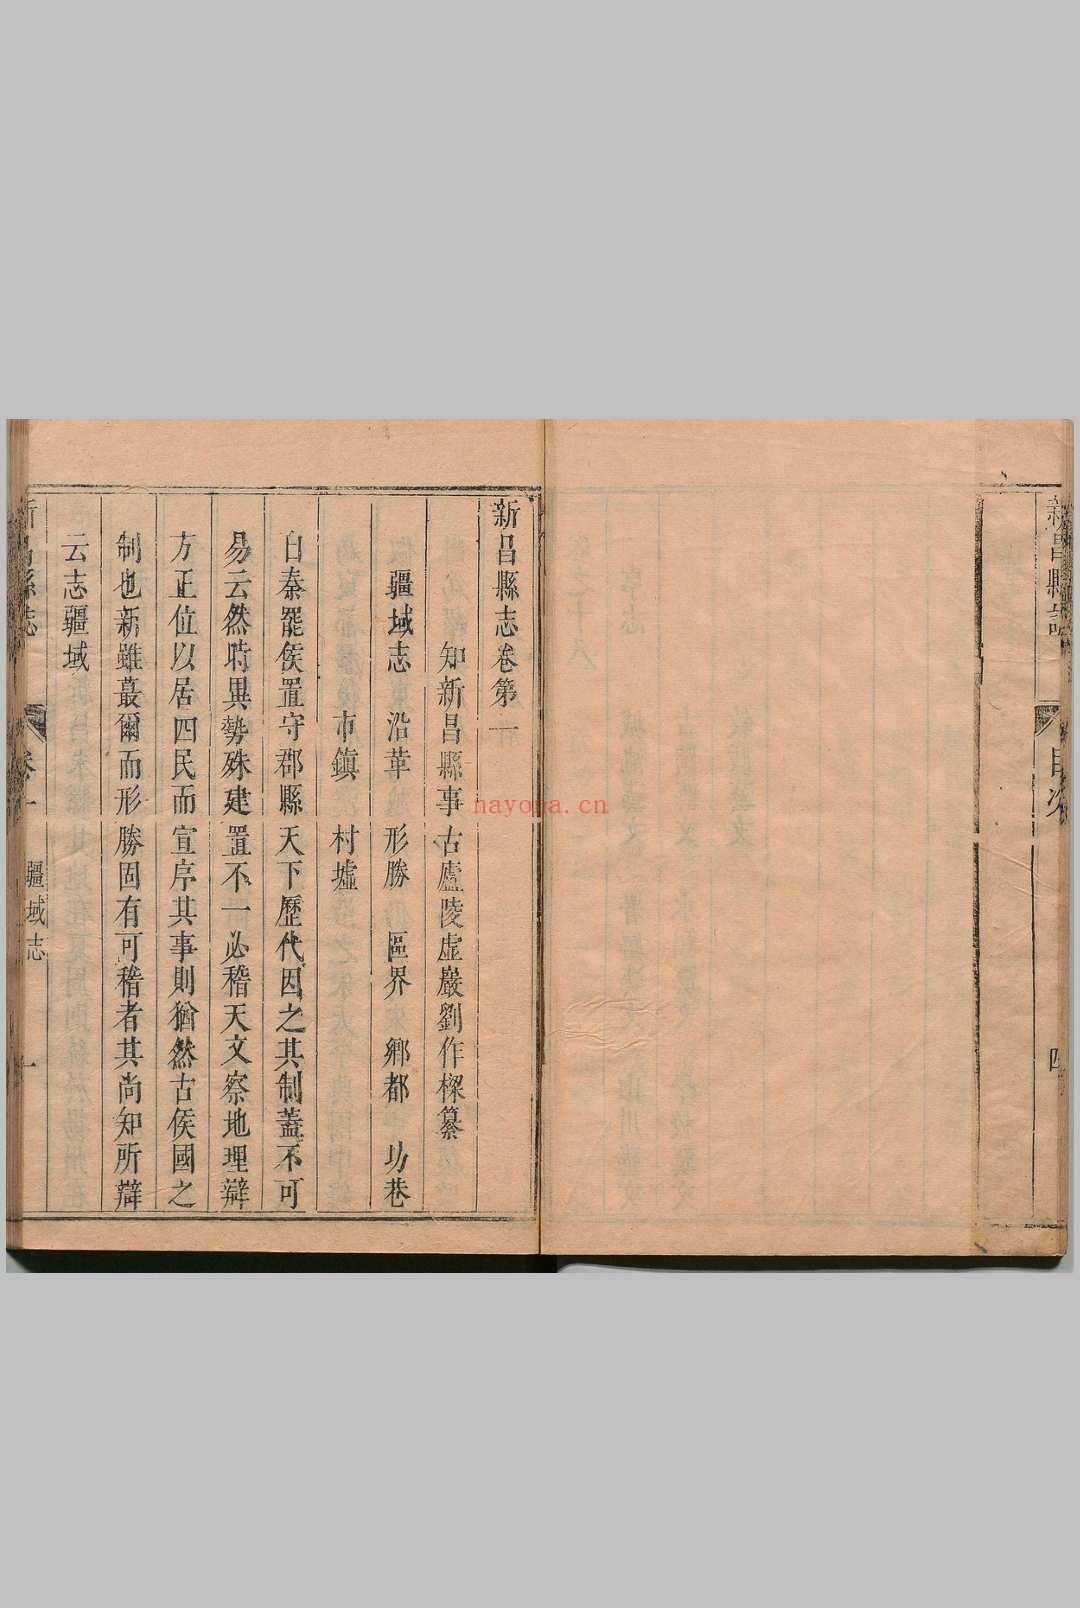 新昌縣誌
目次
四
新昌縣志卷第一
知新昌縣事古廬陵虛巖劉作樑纂
疆域志 沿革 形勝 區界 鄉都 坊巷
市鎮 村墟
自秦罷侯置守郡縣天下歷代因之其制蓋不可
易云然時異勢殊建置不一必稽天文察地理辯
方正位以居四民而宣序其事則猶然古侯國之
制也新雖蕞爾而形勝固有可稽者其尚知所辯
云志疆域
新昌縣志
卷一
疆域志
一
nayona.cn